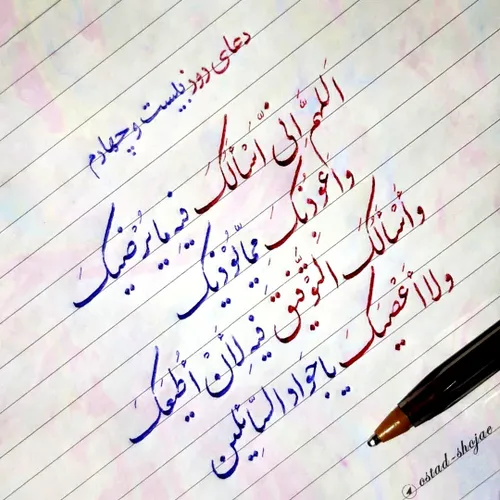 دعای روز بیست و چهارم
اللهم اِنّی أَسْأَلُکَ فیهِ ما یُرْضیکَ
وأعوذُبِکَ مِمّا یُؤْذیکَ
وأَسْألُکَ التَّوفیقَ فیهِ لِأَنْ أُطیعَکَ
ولا أَعْصیکَ یا جَوادَ السّائِلین
@ostad-shojae